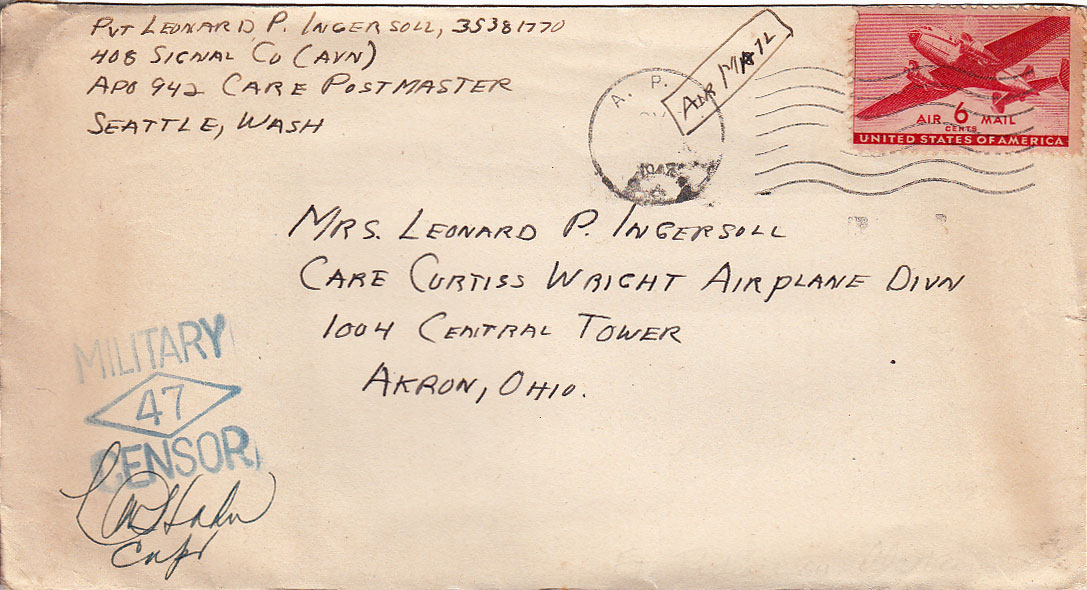 PVT LEONARD P. INGERSOLL, 35381770
408 SIGNAL CO (AVN)
APO 942 CARE POSTMASTER
SEATTLE, WASH
A. P.
AIR MAIL
AIR 6 MAIL
CENTS
UNITED STATES OF AMERICA
MRS. LEONARD P. INGERSOLL
CARE CURTISS WRIGHT AIRPLANE DIVN
1004 CENTRAL TOWER
AKRON, OHIO.
MILITARY
47
CENSOR
Capt